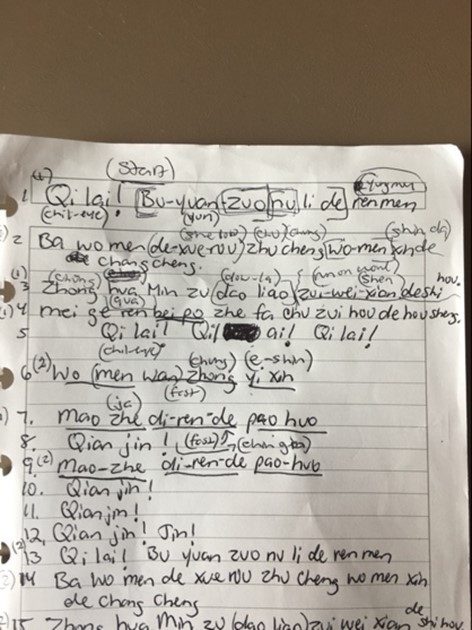 (Start)
(1)
1 Qi lai! Bu-yuan zuo nu li de ren men
(chil-eye) (yun)
(chu) (chung)
2 Ba wo men (de-xue-rou) zhu cheng wo-men xin de
chang cheng.
(1) (Shen) hou.
3 Zhong hua Min zu (dao liao) zui-wei-xian de shi
(gua)
4 mei ge ren bei po zhe fa chu zui hou de hou sheng.
5 Qi lai! Qi ai! Qi lai!
(chil-eye) (chung) (e-shin)
6 (2) Wo (men wan) zhong yi xin
(ja) (fast)
7. mao zhe di-ren-de pao huo
8. Qian jin! (fast)
9. (2) Mao-zhe di-ren-de pao-huo
10. Qian jin!
11. Qian jin!
12. Qian jin! Jin!
13 Qi lai! Bu yuan zuo nu li de ren men
14 Ba wo men de xue rou zhu cheng wo men xin
de chang cheng
de
15 Zhong hua Min zu (dao liao) zui wei xian shi hou